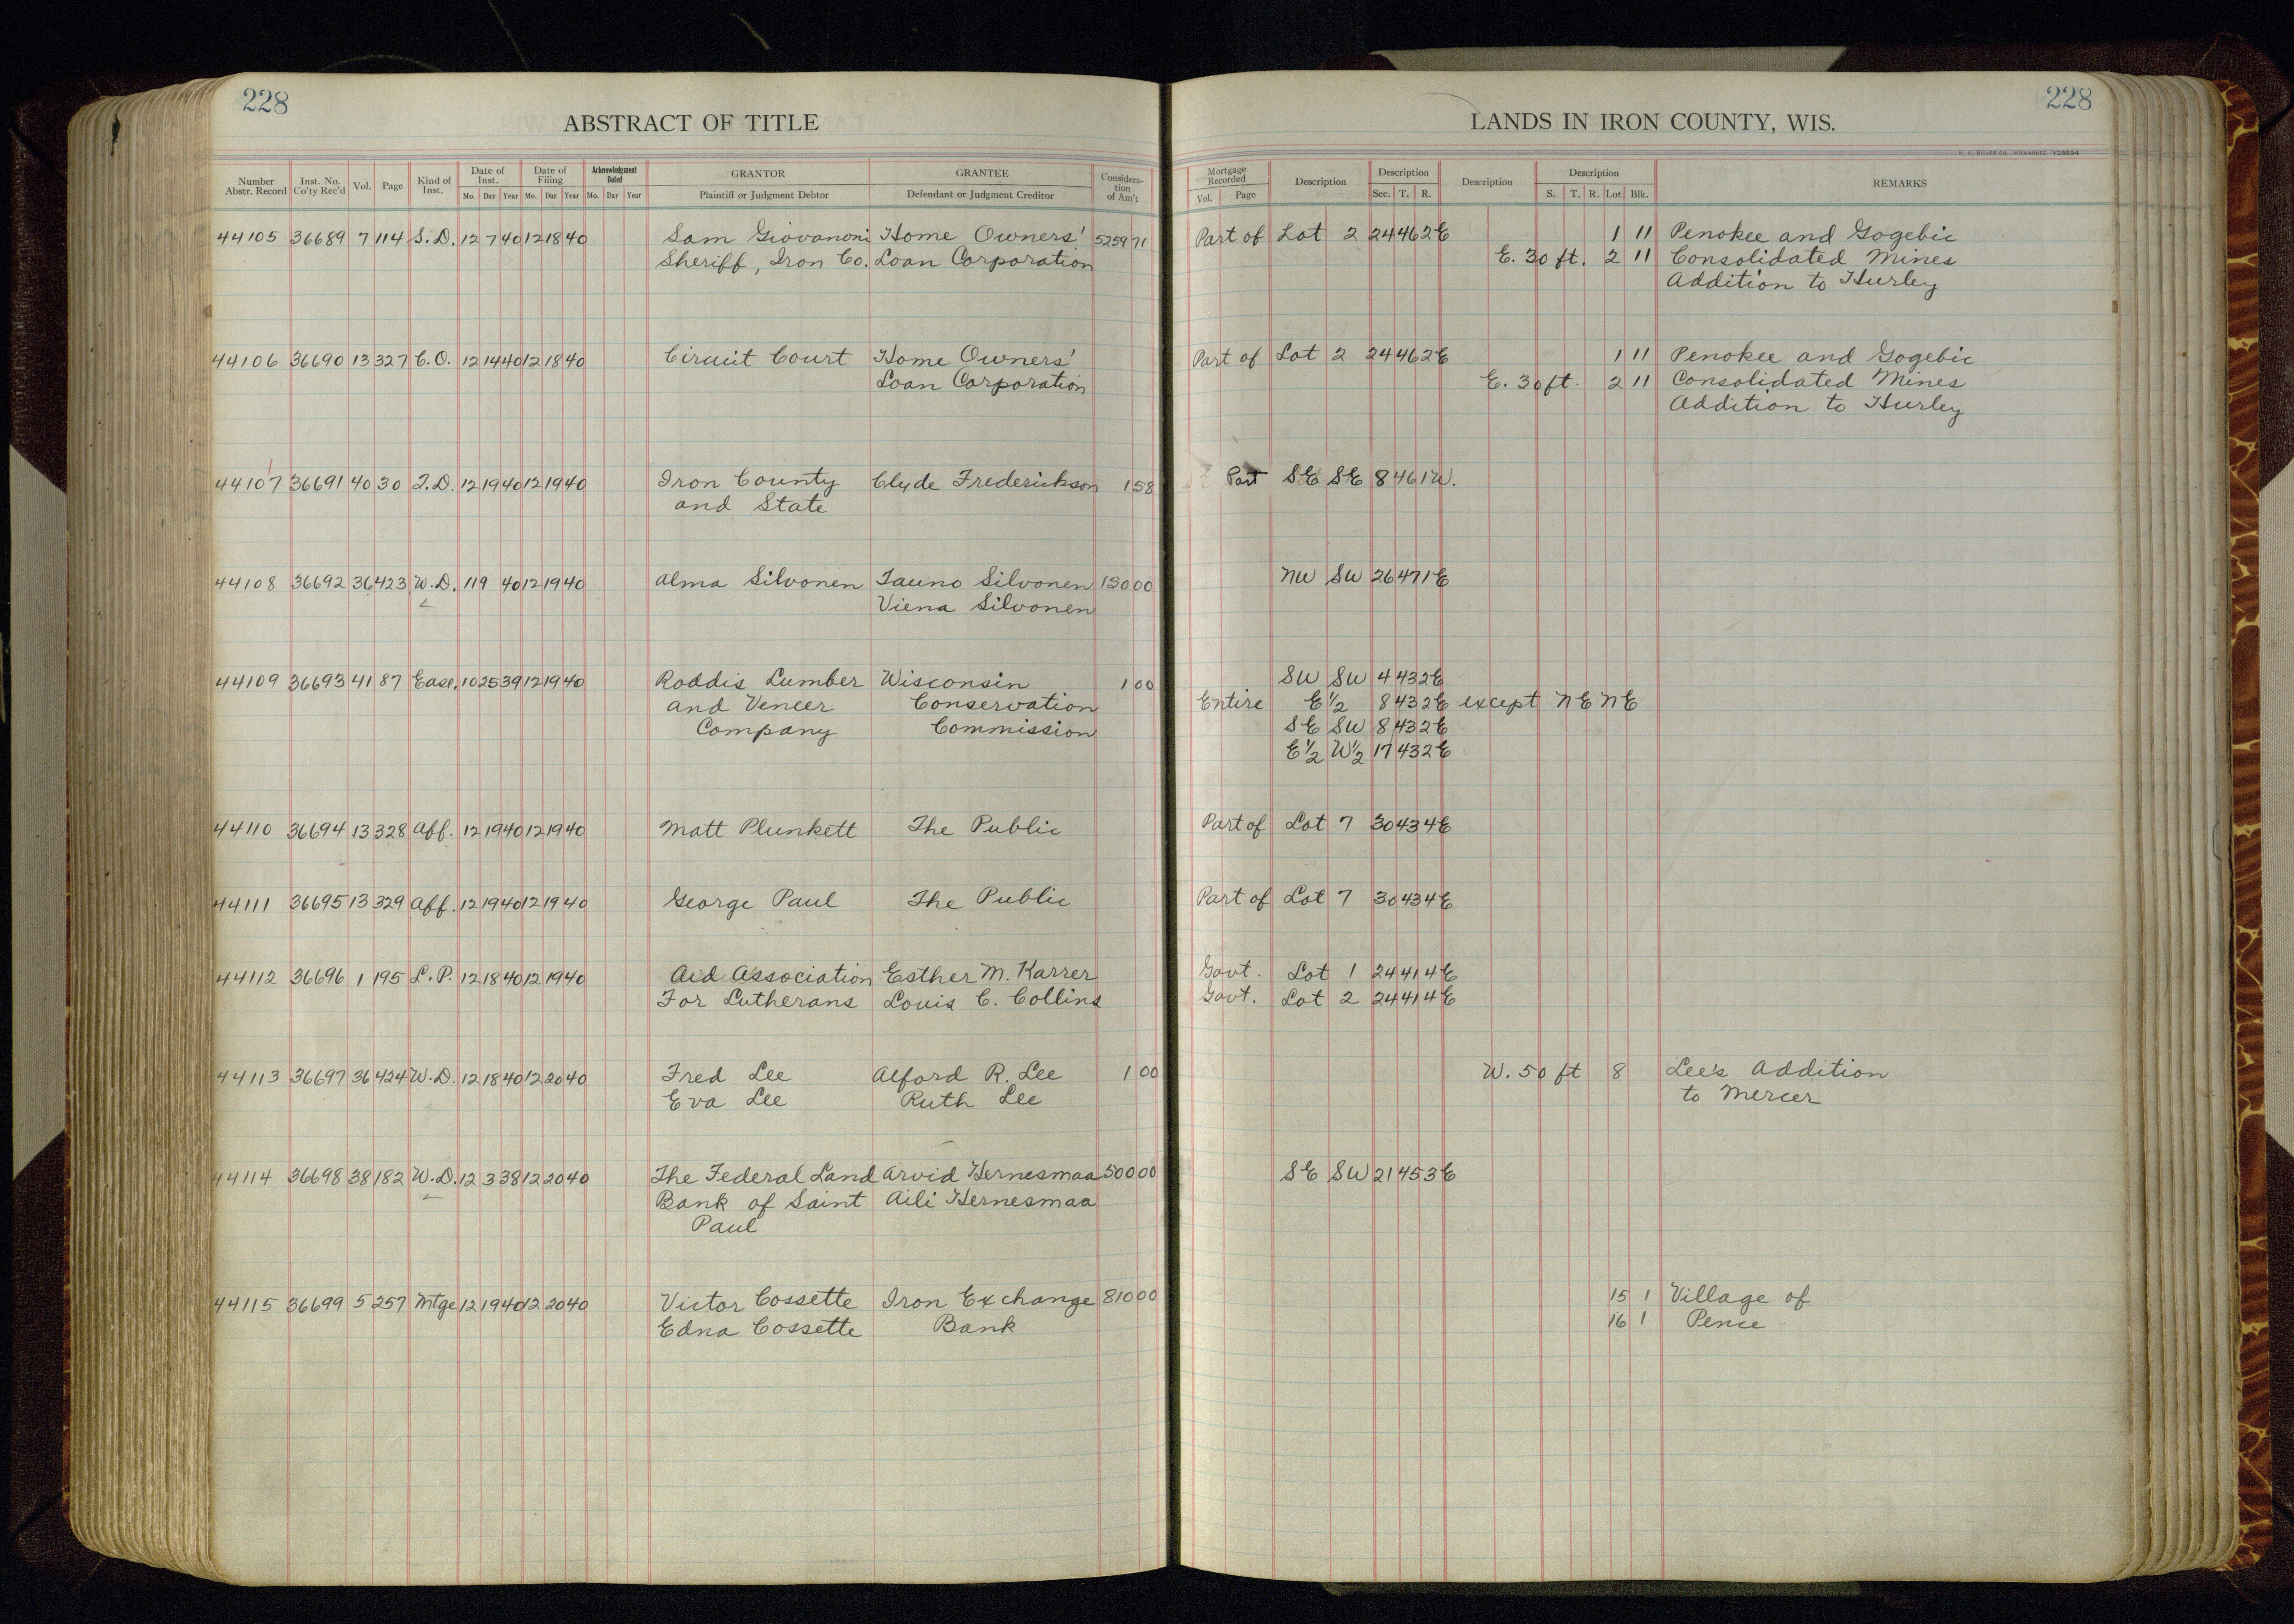 228
ABSTRACT OF TITLE
Number Abstr. Record Inst. No. Co'ty Rec'd Vol. Page Kind of Inst. Date of Inst. Mo. Day Year Date of Filing Mo. Day Year Acknowledgment Dated Mo. Day Year GRANTOR Plaintiff or Judgment Debtor GRANTEE Defendant or Judgment Creditor Considera-tion of Am't
44105 36689 7 114 S.D. 12 7 40 12 18 40 Sam Giovanoni Home Owners' 5259 71
Sheriff, Iron Co. Loan Corporation
44106 36690 13 327 C.O. 12 14 40 12 18 40 Circuit Court Home Owners'
Loan Corporation
44107 36691 40 30 T.D. 12 19 40 12 19 40 Iron County Clyde Frederickson 1 58
and State
44108 36692 36 423 W.D. 11 9 40 12 19 40 Alma Silvonen Tauno Silvonen 150 00
Viena Silvonen
44109 36693 41 87 Ease. 10 25 39 12 19 40 Roddis Lumber Wisconsin 1 00
and Veneer Conservation
Company Commission
44110 36694 13 328 Aff. 12 19 40 12 19 40 Matt Plunkett The Public
44111 36695 13 329 Aff. 12 19 40 12 19 40 George Paul The Public
44112 36696 1 195 L.P. 12 18 40 12 19 40 Aid Association Esther M. Karrer
For Lutherans Louis C. Collins
44113 36697 36 424 W.D. 12 18 40 12 20 40 Fred Lee Alford R. Lee 1 00
Eva Lee Ruth Lee
44114 36698 38 182 W.D. 12 3 38 12 20 40 The Federal Land Arvid Hernesmaa 500 00
Bank of Saint Aili Hernesmaa
Paul
44115 36699 5 257 Mtge 12 19 40 12 20 40 Victor Cossette Iron Exchange 810 00
Edna Cossette Bank
228
LANDS IN IRON COUNTY, WIS.
Mortgage Recorded Vol. Page Description Description Sec. T. R. Description Description S. T. R. Lot Blk. REMARKS
Part of Lot 2 24 46 2E 1 11 Penokee and Gogebic
E. 30 ft. 2 11 Consolidated Mines
Addition to Hurley
Part of Lot 2 24 46 2E 1 11 Penokee and Gogebic
E. 30 ft. 2 11 Consolidated Mines
Addition to Hurley
Part SE SE 8 46 1W.
NW SW 26 47 1E
SW SW 4 43 2E
Entire E 1/2 8 43 2E except NE NE
SE SW 8 43 2E
E 1/2 W 1/2 17 43 2E
Part of Lot 7 30 43 4E
Part of Lot 7 30 43 4E
Govt. Lot 1 24 41 4E
Govt. Lot 2 24 41 4E
W. 50 ft 8 Lee's Addition
to Mercer
SE SW 21 45 3E
15 1 Village of
16 1 Pence